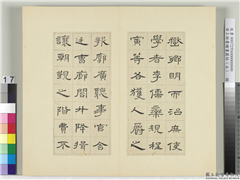 嶽鄉明而治庶使
學者李儒欒規程
寅等各獲人爵之
報廓廣聽事官舍
廷曹廊閤升降揖
讓朝覲之階費不
17